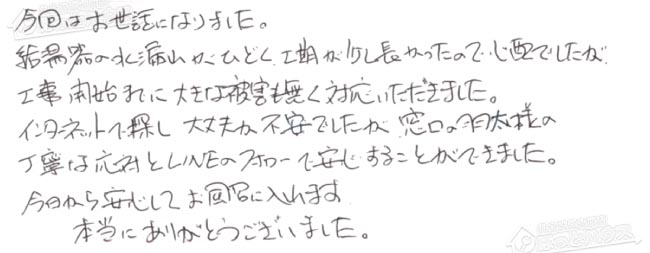 今回はお世話になりました。
給湯器の水漏れがひどく工期が少し長かったので心配でしたが
工事開始までに大きな被害も無く対応いただきました。
インターネットで探し大丈夫か不安でしたが窓口の 様の
丁寧な応対とLINEのフォローで安心することができました。
今日から安心してお風呂に入れます
本当にありがとうございました。